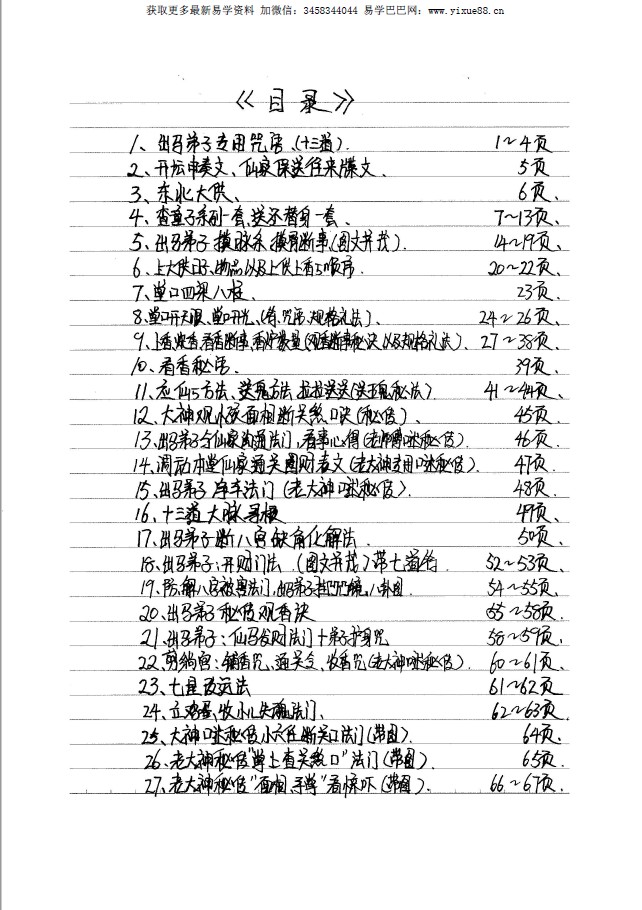 获取更多最新易学资料 加微信：3458344044 易学巴巴网：www.yixue88.cn
《目录》
1、出马弟子专用咒语、(十三道). 1～4页
2、开坛申表文、仙家保送往来牒文、 5页
3、东北大供、 6页、
4、查童子系列一套、送还替身一套、 7～13页、
5、出马弟子摸脉条、摸骨断事(图文并茂). 14～19页、
6、上大供口子、物品以及上供上香顺序. 20～22页、
7、堂口四梁八柱、 23页、
8、堂口开天眼、堂口开光、(条、咒语、规格礼法)、 24～26页、
9、 27～38页、
10、看香秘法. 39页、
11、应仙方法、送鬼方法、 41～44页、
12、大神观水碗面相断关煞口决(秘传)、 45页、
13、出马弟子合仙家沟通法门、看事心得(秘传)、 46页、
14、调动本堂仙家通关图财表文(老大神专用口述秘传)、 47页、
15、出马弟子净手法门(老大神口述秘传)、 48页、
16、十三道大脉 49页、
17、出马弟子断八宫缺角化解法. 50页、
18、出马弟子：开财门法．(图文并茂)带七道符 52～53页、
19、防、解八宫被害法门、出马弟子 八卦图. 54～55页、
20、出马弟子秘传观香诀 55～58页、
21、出马弟子：仙马发财法门＋弟子护身咒 58～59页、
22、 铺香咒、通关令、收香咒(老大神口述秘传)、 60～61页、
23、七星改运法 61～62页
24、立鸡蛋、收小儿失魂法门、 62～63页、
25、大神口述秘传小六壬断关口法门(带图)、 64页、
26、老大神秘传"掌上查关煞口"法门(带图)、 65页、
27、老大神秘传"面相、手掌"看惊吓(带图)、 66～67页、